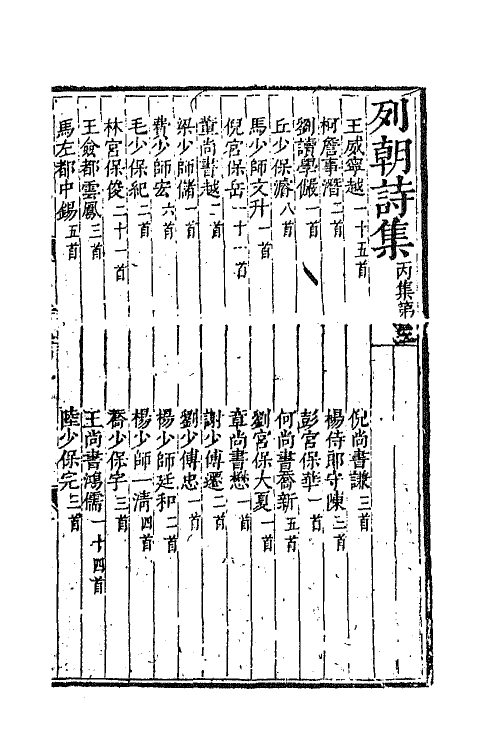 列朝詩集丙集第三
王威寧越一十五首
倪尚書謙三首
柯詹事潛二首
楊侍郎守陳三首
劉讀學儼一首
彭宮保華一首
丘少保濬八首
何尚書喬新五首
馬少師文升一首
劉宮保大夏一首
倪宮保岳一十一首
章尚書懋一首
董尚書越二首
謝少傅遷二首
梁少師儲一首
劉少傅忠一首
費少師宏六首
楊少師廷和二首
毛少保紀二首
楊少師一清四首
林宮保俊二十一首
喬少保宇三首
王僉都雲鳳三首
王尚書鴻儒一十四首
馬左都中錫五首
陸少保完三首